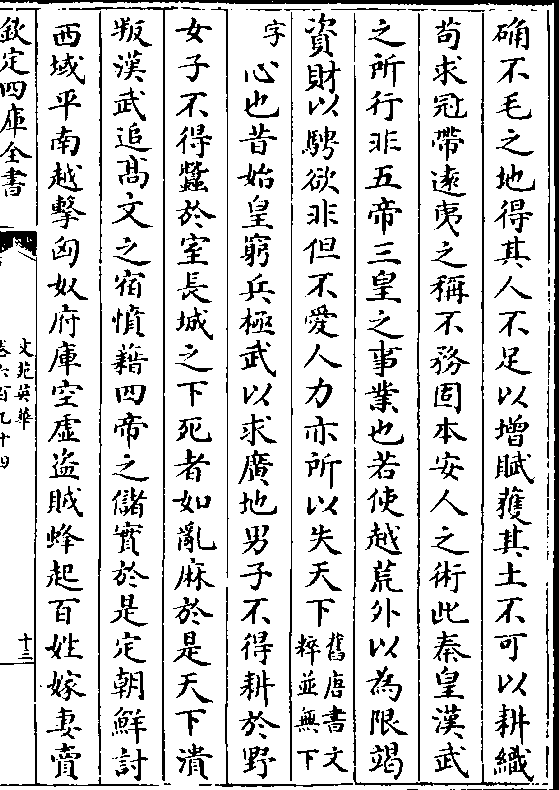 确不毛之地得其人不足以增賦獲其土不可以耕織
茍求冠帶逺夷之稱不務固本安人之術此秦皇漢武
之所行非五帝三皇之事業也若使越荒外以為限竭
資財以騁欲非但不愛人力亦所以失天下舊唐書文
粹並無下
字心也昔始皇窮兵極武以求廣地男子不得耕於野
女子不得蠶於室長城之下死者如亂麻於是天下潰
叛漢武追髙文之宿憤藉四帝之儲實於是定朝鮮討
西域平南越擊匈奴府庫空虛盗賊蜂起百姓嫁妻賣
欽定四庫全書
文苑英華
卷六百九十四
十三